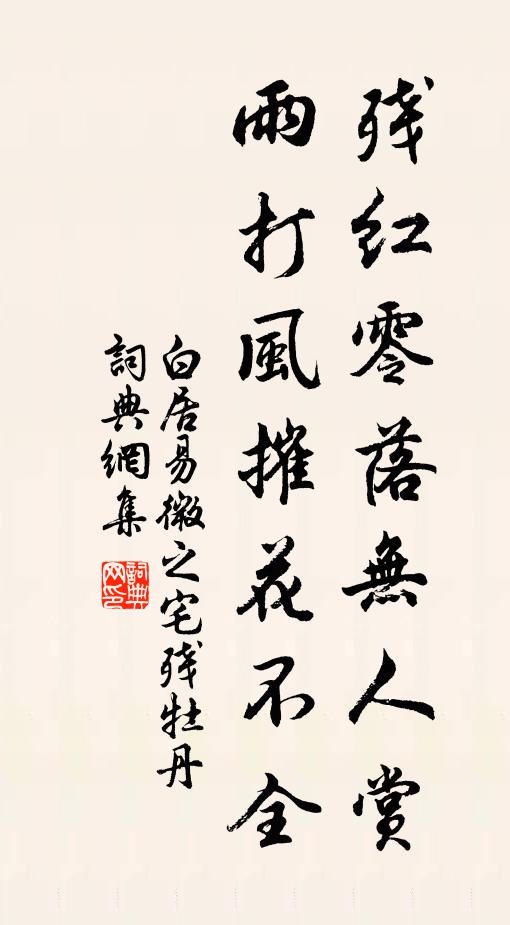 残红零落無人赏
雨打風摧花不全
白居易微之宅残牡丹
詞典網集
詞典
网印